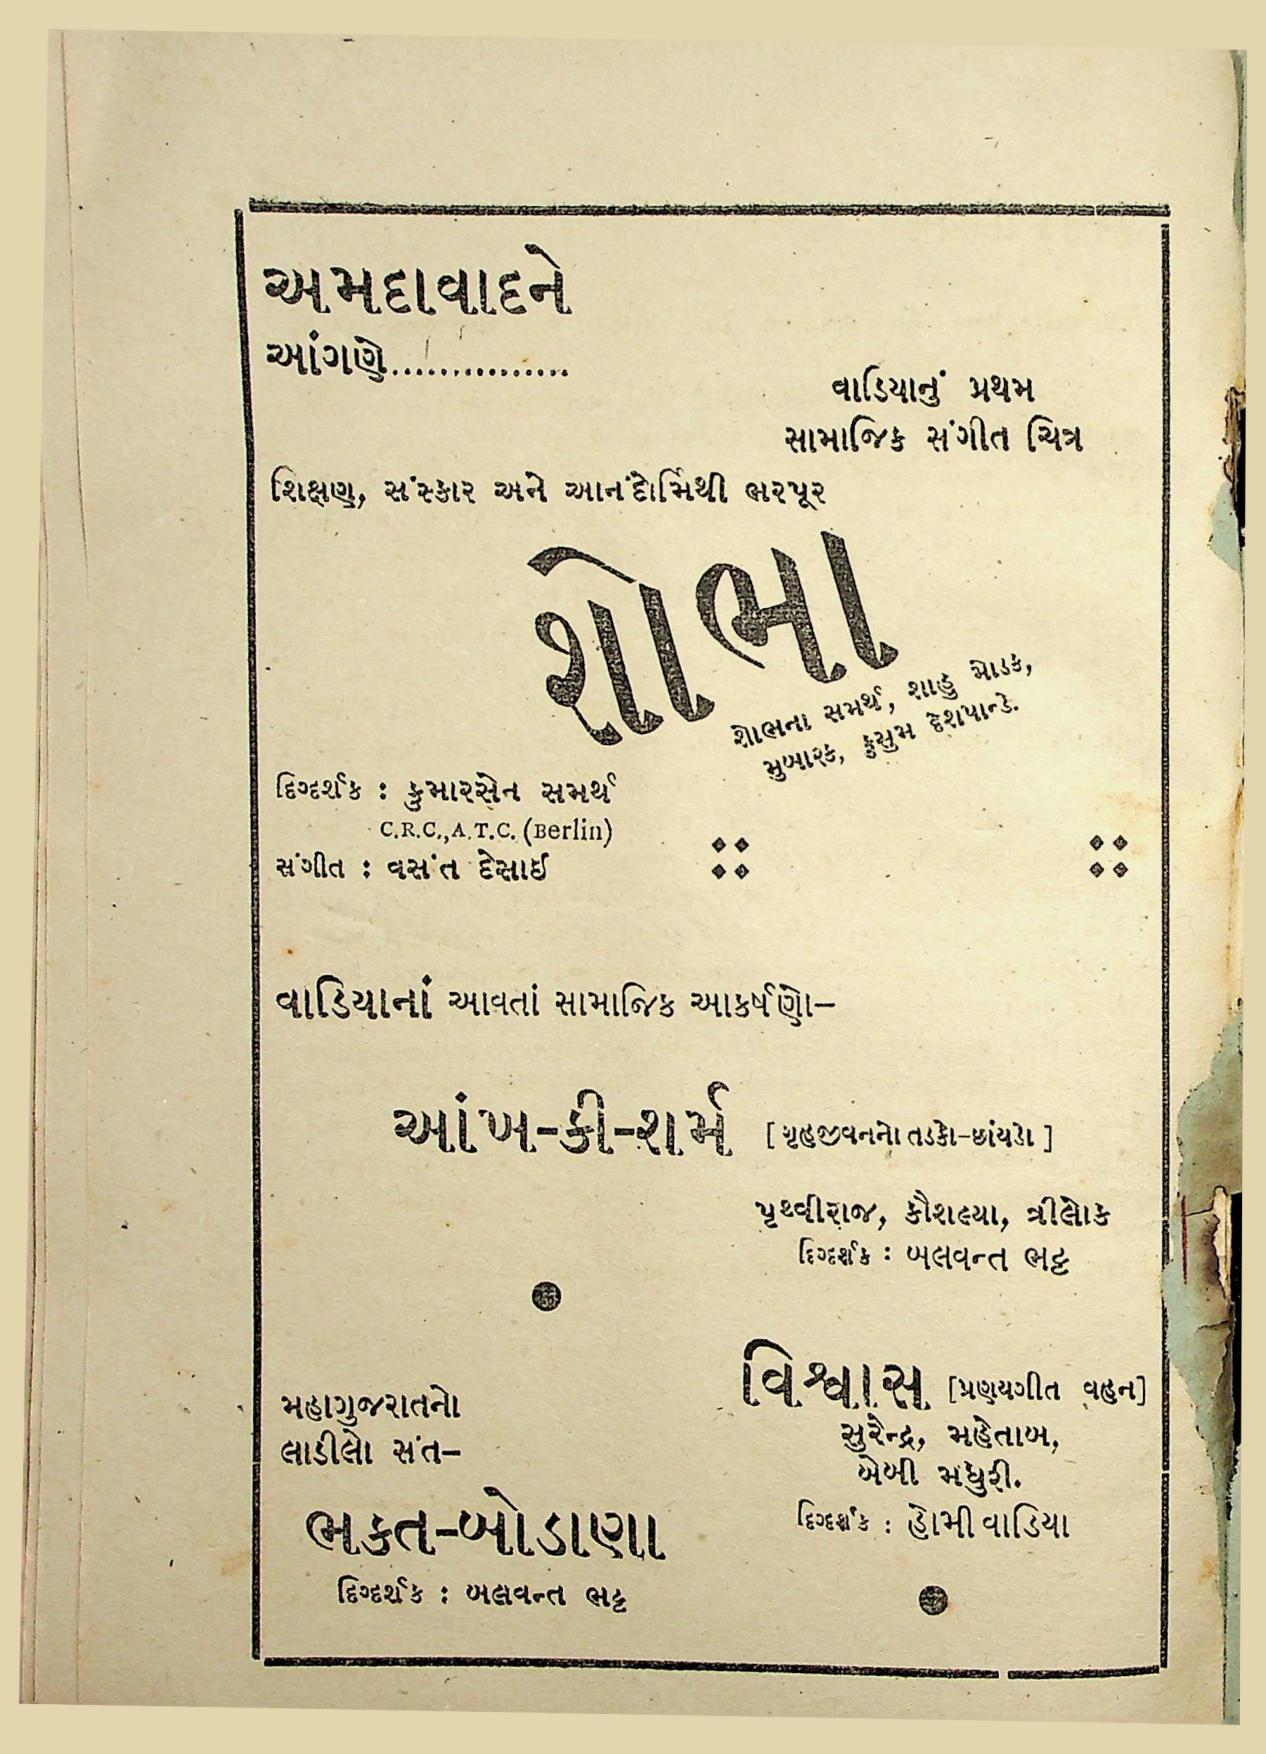 અમદાવાદને
આંગણે...............
વાડિયાનું પ્રથમ
સામાજિક સંગીત ચિત્ર
શિક્ષણ, સંસ્કાર અને આનંદોર્મિથી ભરપૂર
શોભા
શોભના સમર્થ, શાહુ મોડક,
મુબારક, કુસુમ દેશપાન્ડે.
દિગ્દર્શક : કુમારસેન સમર્થ
C.R.C.,A.T.C. (Berlin)
સંગીત : વસંત દેસાઈ
વાડિયાનાં આવતાં સામાજિક આકર્ષણો–
આંખ-કી-શર્મ [ગૃહજીવનનો તડકો-છાંયડો]
પૃથ્વીરાજ, કૌશલ્યા, ત્રીલોક
દિગ્દર્શક : બલવન્ત ભટ્ટ
વિશ્વાસ [પ્રણયગીત વહન]
સુરેન્દ્ર, મહેતાબ,
બેબી મધુરી.
દિગ્દર્શક : હોમી વાડિયા
મહાગુજરાતનો
લાડીલો સંત–
ભક્ત-બોડાણા
દિગ્દર્શક : બલવન્ત ભટ્ટ